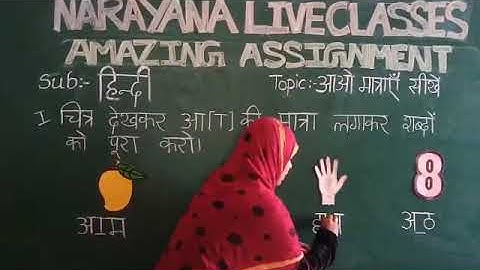 NARAYANA LIVECLASSES
AMAZING ASSIGNMENT
Sub:- हिन्दी
Topic:- आओ मात्राएँ सीखें
I चित्र देखकर आ[ा] की मात्रा लगाकर शब्दों
को पूरा करो।
8
आ_म
अ_ठ